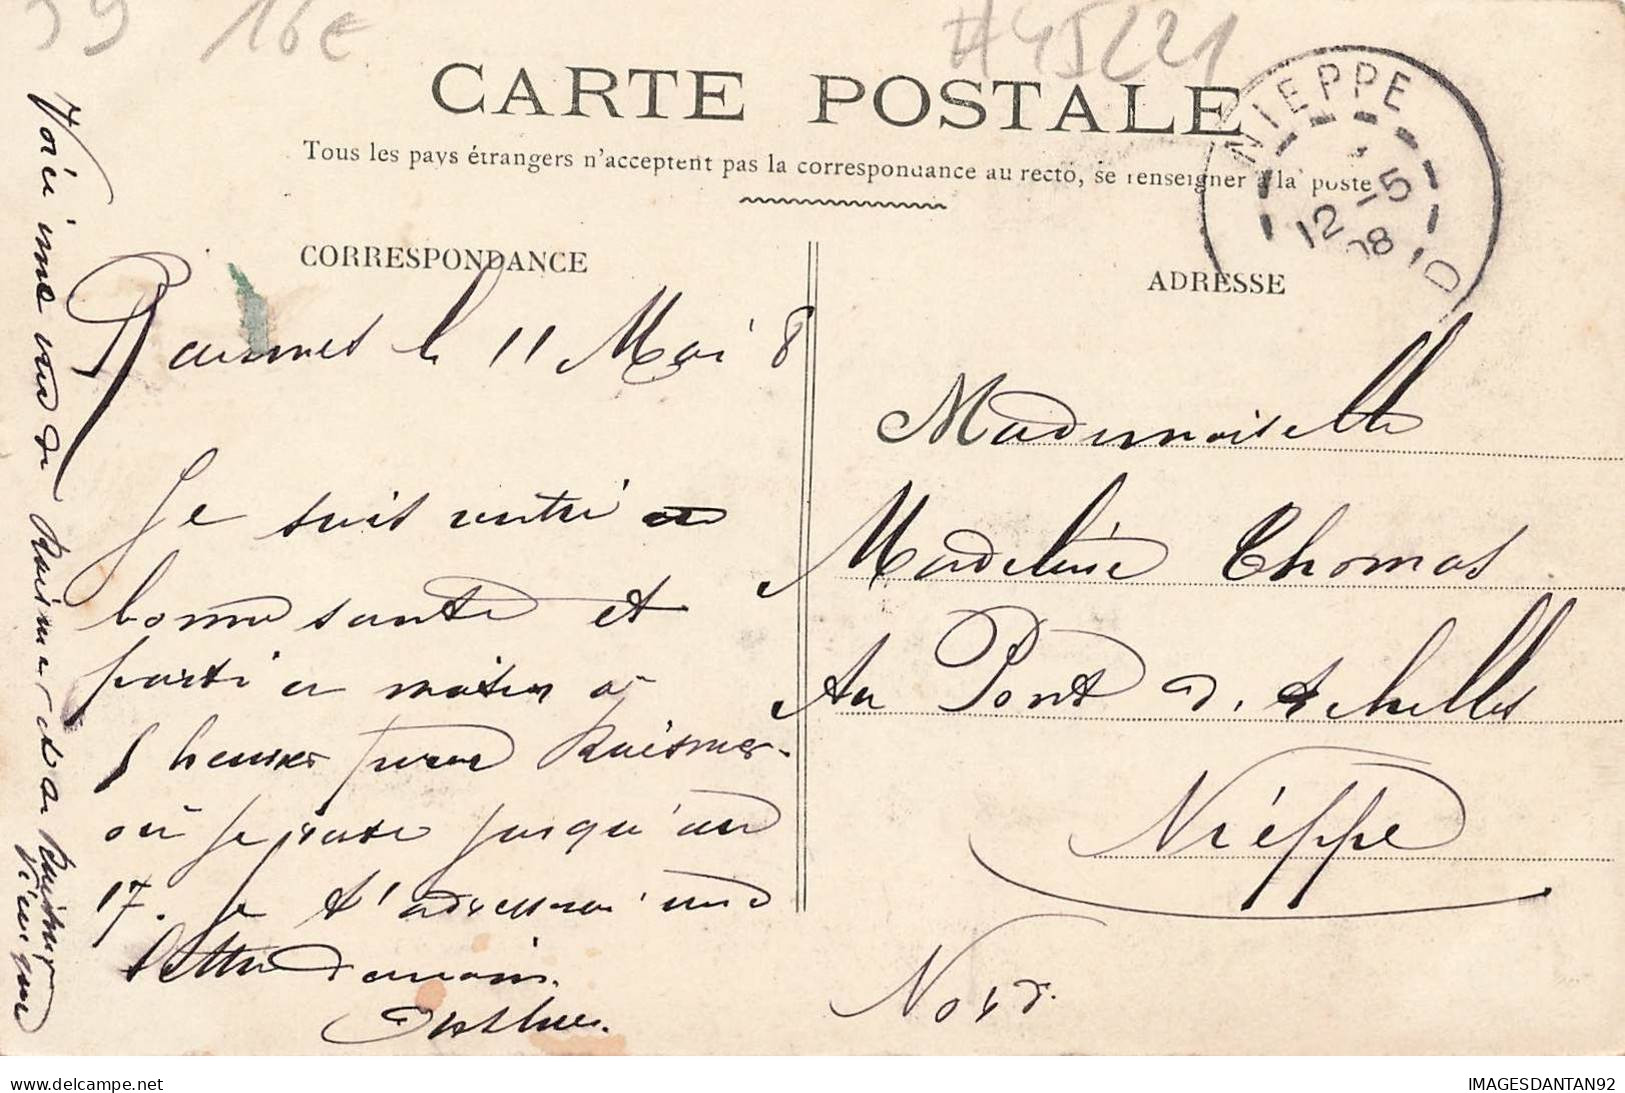 39 16€ #45221
CARTE POSTALE
Tous les pays étrangers n'acceptent pas la correspondance au recto, se renseigner à la poste
NIEPPE
12 -5
08
CORRESPONDANCE
ADRESSE
Raismes le 11 Mai 8
Je suis rentré en
bonne santé et
parti ce matin à
5 heures pour Raismes
où je reste jusqu'au
17. Je t'adresserai une
lettre demain.
Arthur.
Voici une vue de Raismes et de
Mademoiselle
Madeleine Thomas
Au Pont d'Achelles
Niéppe
Nord.
www.delcampe.net
IMAGESDANTAN92